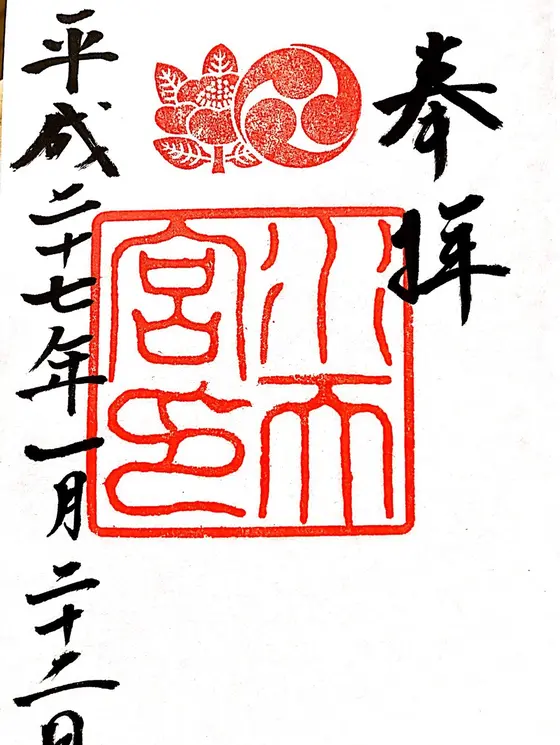 奉拝
水天
宮印
平成二十七年一月二十二日